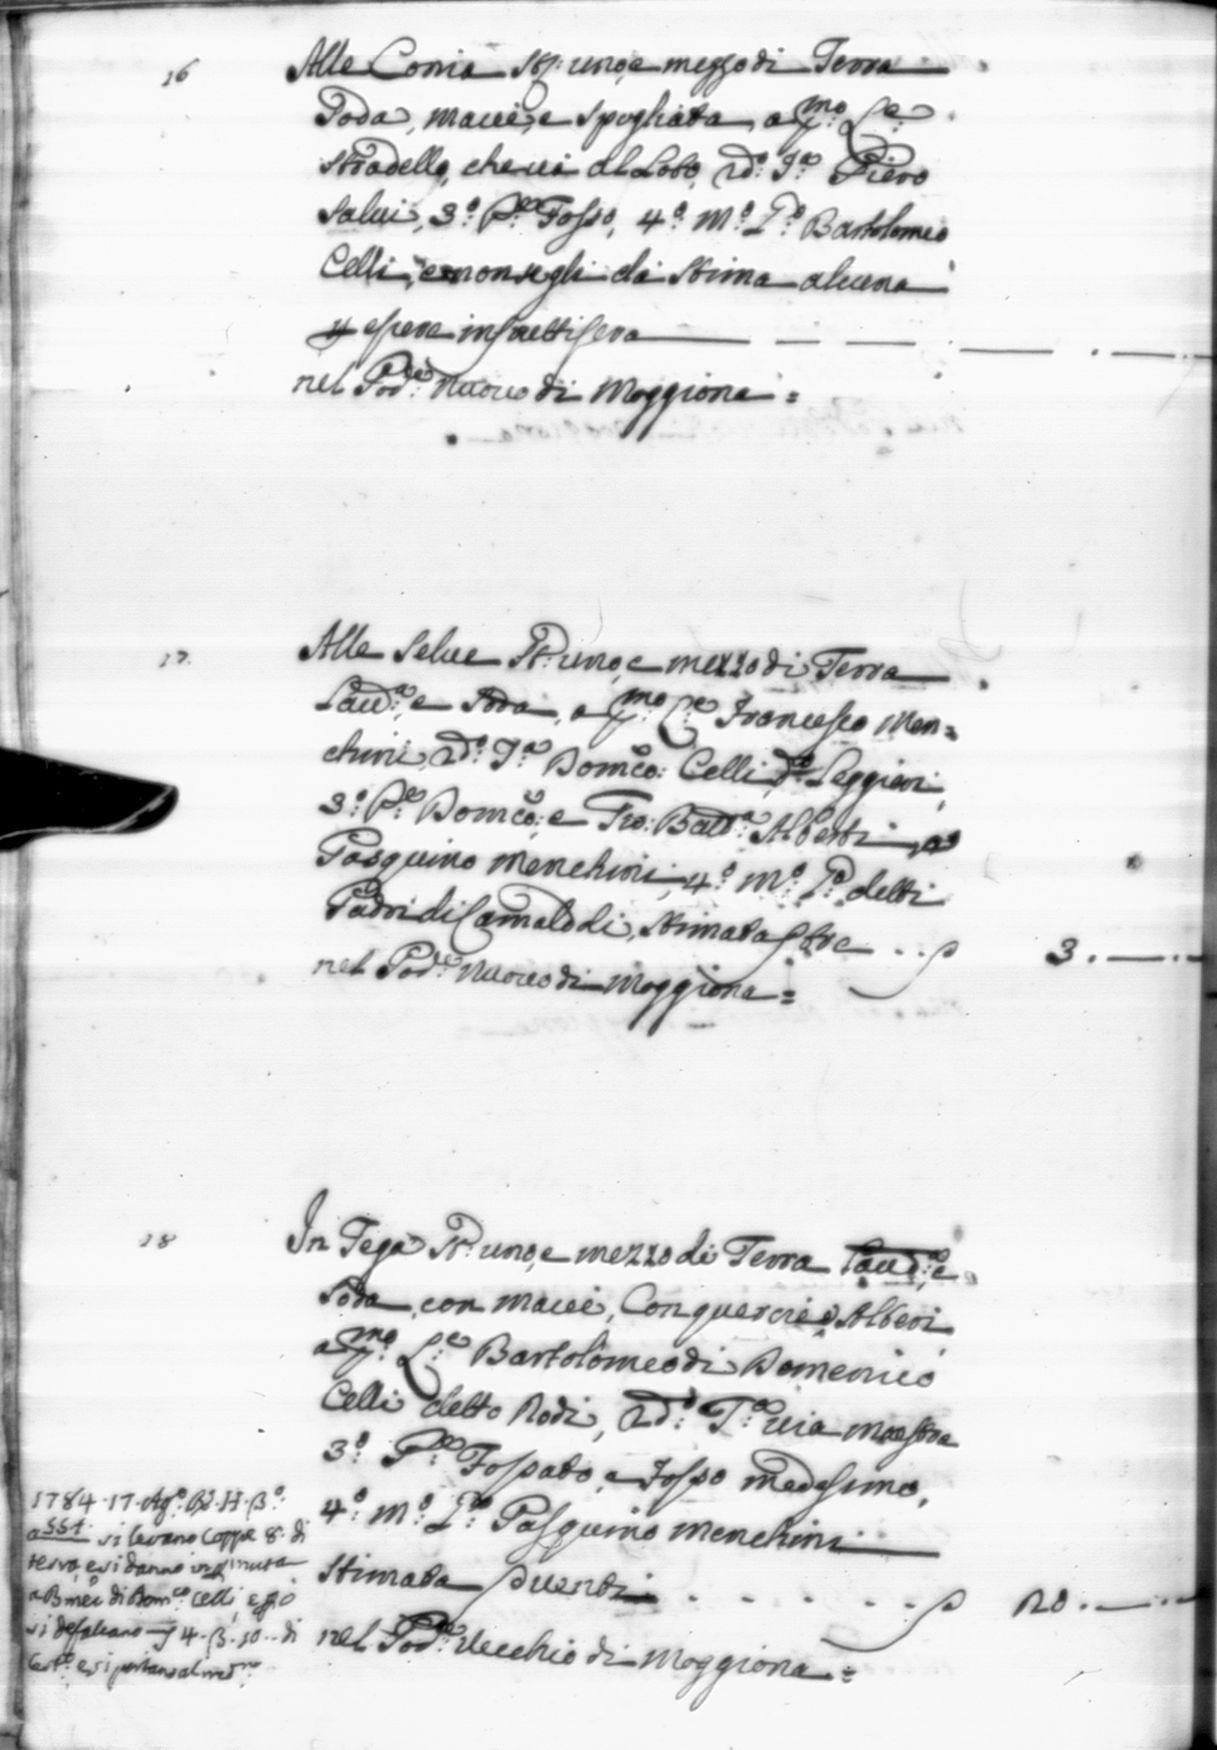 16
Alle Conia St: uno, e mezzo di Terra
Soda, macie, e spogliata, a p:mo L:e
Stradello, che va al Lobo, 2d:o J:a Piero
Salvi, 3:o P:e Fosso, 4:o M:o L:o Bartolomeo
Celli, e non segli da Stima alcuna
p essere infruttifera
nel Pod:e Nuovo di Moggiona =
17.
Alle Selve St: uno, e mezzo di Terra
Lavd:a, e Soda, a p:mo L:e Francesco Men=
chini, 2d:o J:a Domco: Celli, d:o Leggieri,
3:o P:e Domco:, e Gio: Batt:a Alberti,
Pasquino Menchini, 4:o M:o L:o detti
Padri di Camaldoli, Stimata
3. —
nel Pod:e Nuovo di Moggiona =
18
In Tega St: uno, e mezzo di Terra Lavd:a, e
Soda, con macie, Con quercie, e Alberi
a p:mo L:e Bartolomeo di Domenico
Celli detto Rodi, 2d:o J:a via maestra
3:o P:e Fossato, e Fosso medesimo,
4:o M:o L:o Pasquino Menchini
Stimata scudi venti
20. —
nel Pod:e Vecchio di Moggiona =
1784. 17. Ag:o
a 551 si levano Coppe 8. di
terra, e si danno
a Bmeo di Dom:co Celli, e
si defalcano 4. 3. 10. di
e si portano al med:mo